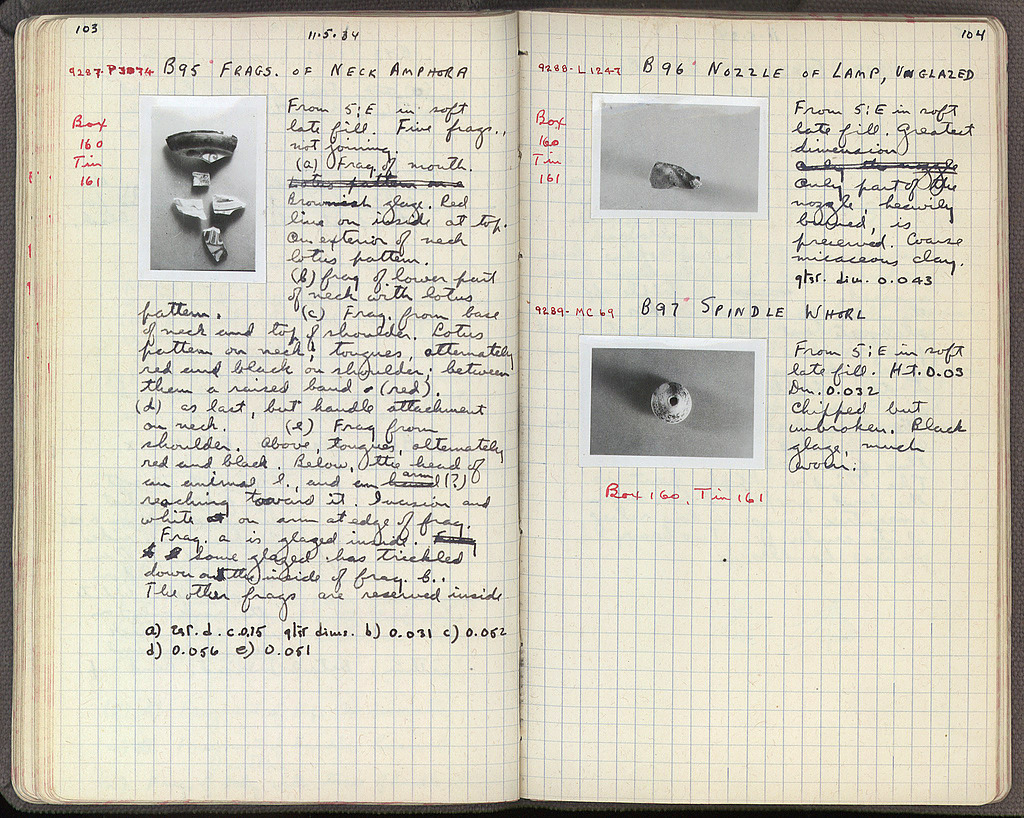 103
11.5.34
9287-P3074 B95 FRAGS. OF NECK AMPHORA
Box
160
Tin
161
From 5:E in soft
late fill. Five frags.,
not joining.
(a) Frag. of mouth.
Lotus pattern on a
Brownish glaze. Red
line on inside at top.
On exterior of neck
lotus pattern.
(b) frag of lower part
of neck with lotus
pattern. (c) Frag. from base
of neck and top of shoulder. Lotus
pattern on neck; tongues, alternately
red and black on shoulder; between
them a raised band (red).
(d) as last, but handle attachment
on neck. (e) Frag from
shoulder. Above, tongues, alternately
red and black. Below, the head of
an animal l., and an hand arm (?)
reaching toward it. Incision and
white on arm at edge of frag.
Frag. a is glazed inside.
Some glazed has trickled
down on the inside of frag. b.
The other frags are reserved inside
a) est. d. c. 0.15 gtst dims. b) 0.031 c) 0.052
d) 0.056 e) 0.051
104
9288-L1247 B96 NOZZLE OF LAMP, UNGLAZED
Box
160
Tin
161
From 5:E in soft
late fill. Greatest
dimension
Only the nozzle
Only part of the
nozzle, heavily
burned, is
preserved. Coarse
micaceous clay.
gtst. dim. 0.043
9289-MC69 B97 SPINDLE WHORL
From 5:E in soft
late fill. Ht. 0.03
Dm. 0.032
Chipped but
unbroken. Black
glaze, much
worn.
Box 160, Tin 161